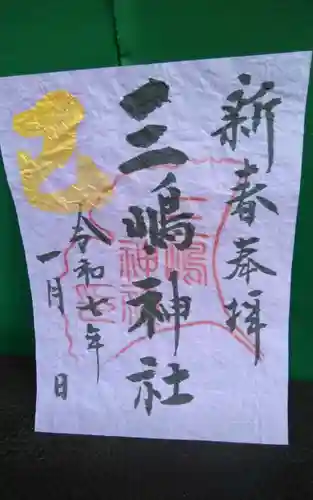 新春奉拝
三嶋神社
令和七年
一月 日
巳
三嶋
神社